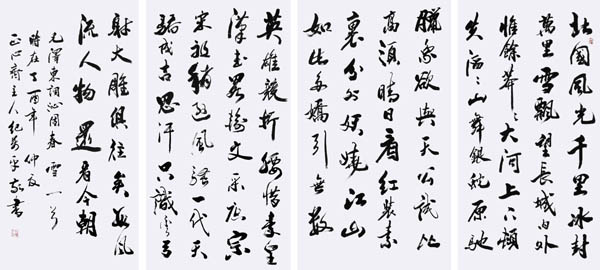 北國風光千里冰封
萬里雪飄望長城内外
惟餘莽〻大河上下頓
失滔〻山舞銀蛇原馳
臘象欲與天公試比
高須晴日看紅裝素
裹分外妖嬈江山
如此多嬌引無數
英雄競折腰惜秦皇
漢武略輸文采唐宗
宋祖稍遜風騷一代天
驕成吉思汗只識彎弓
射大雕俱往矣數風
流人物還看今朝
毛澤東詞沁園春 雪一首
時在丁酉年仲夏
正心齋主人紀書